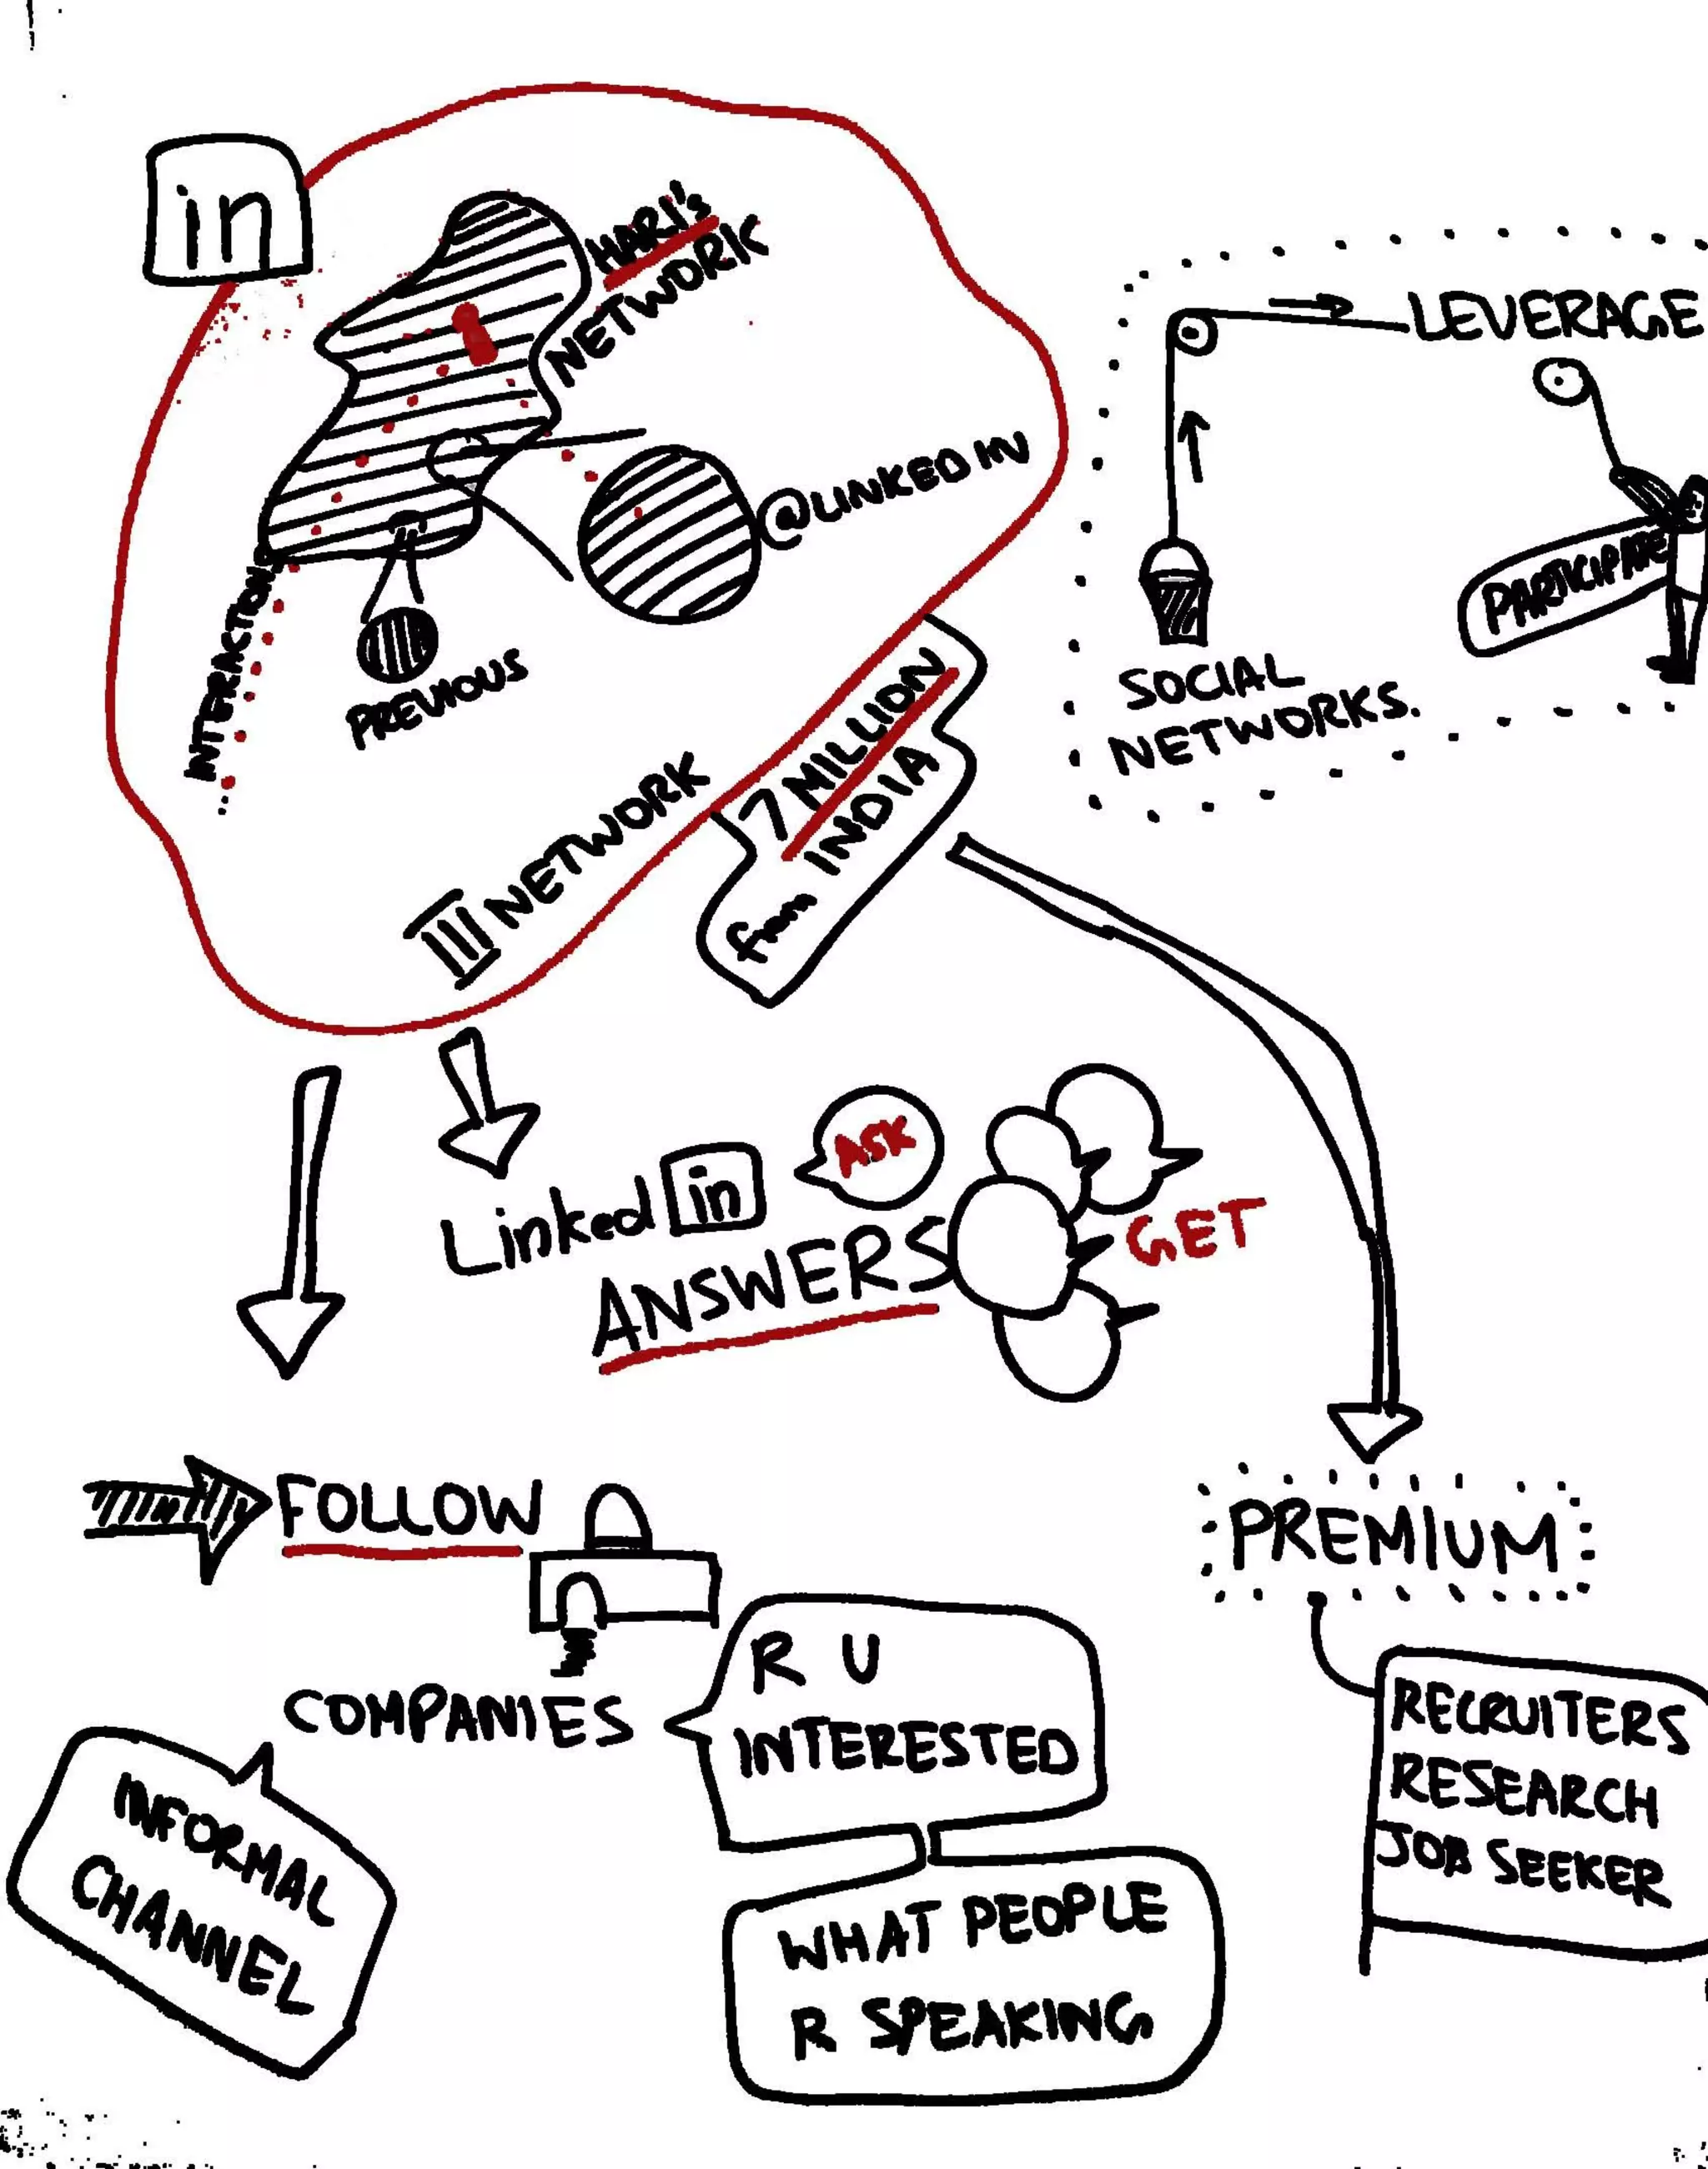 in
HARI's
NETWORK
@LINKED IN
INTERACTION
PREVIOUS
III NETWORK
7 MILLION
from INDIA
LEVERAGE
PARTICIPATE
SOCIAL
NETWORKS.
Linked in
ANSWERS
ASK
GET
FOLLOW
COMPANIES
R U
INTERESTED
INFORMAL
CHANNEL
WHAT PEOPLE
R SPEAKING
PREMIUM
RECRUITERS
RESEARCH
JOB SEEKER